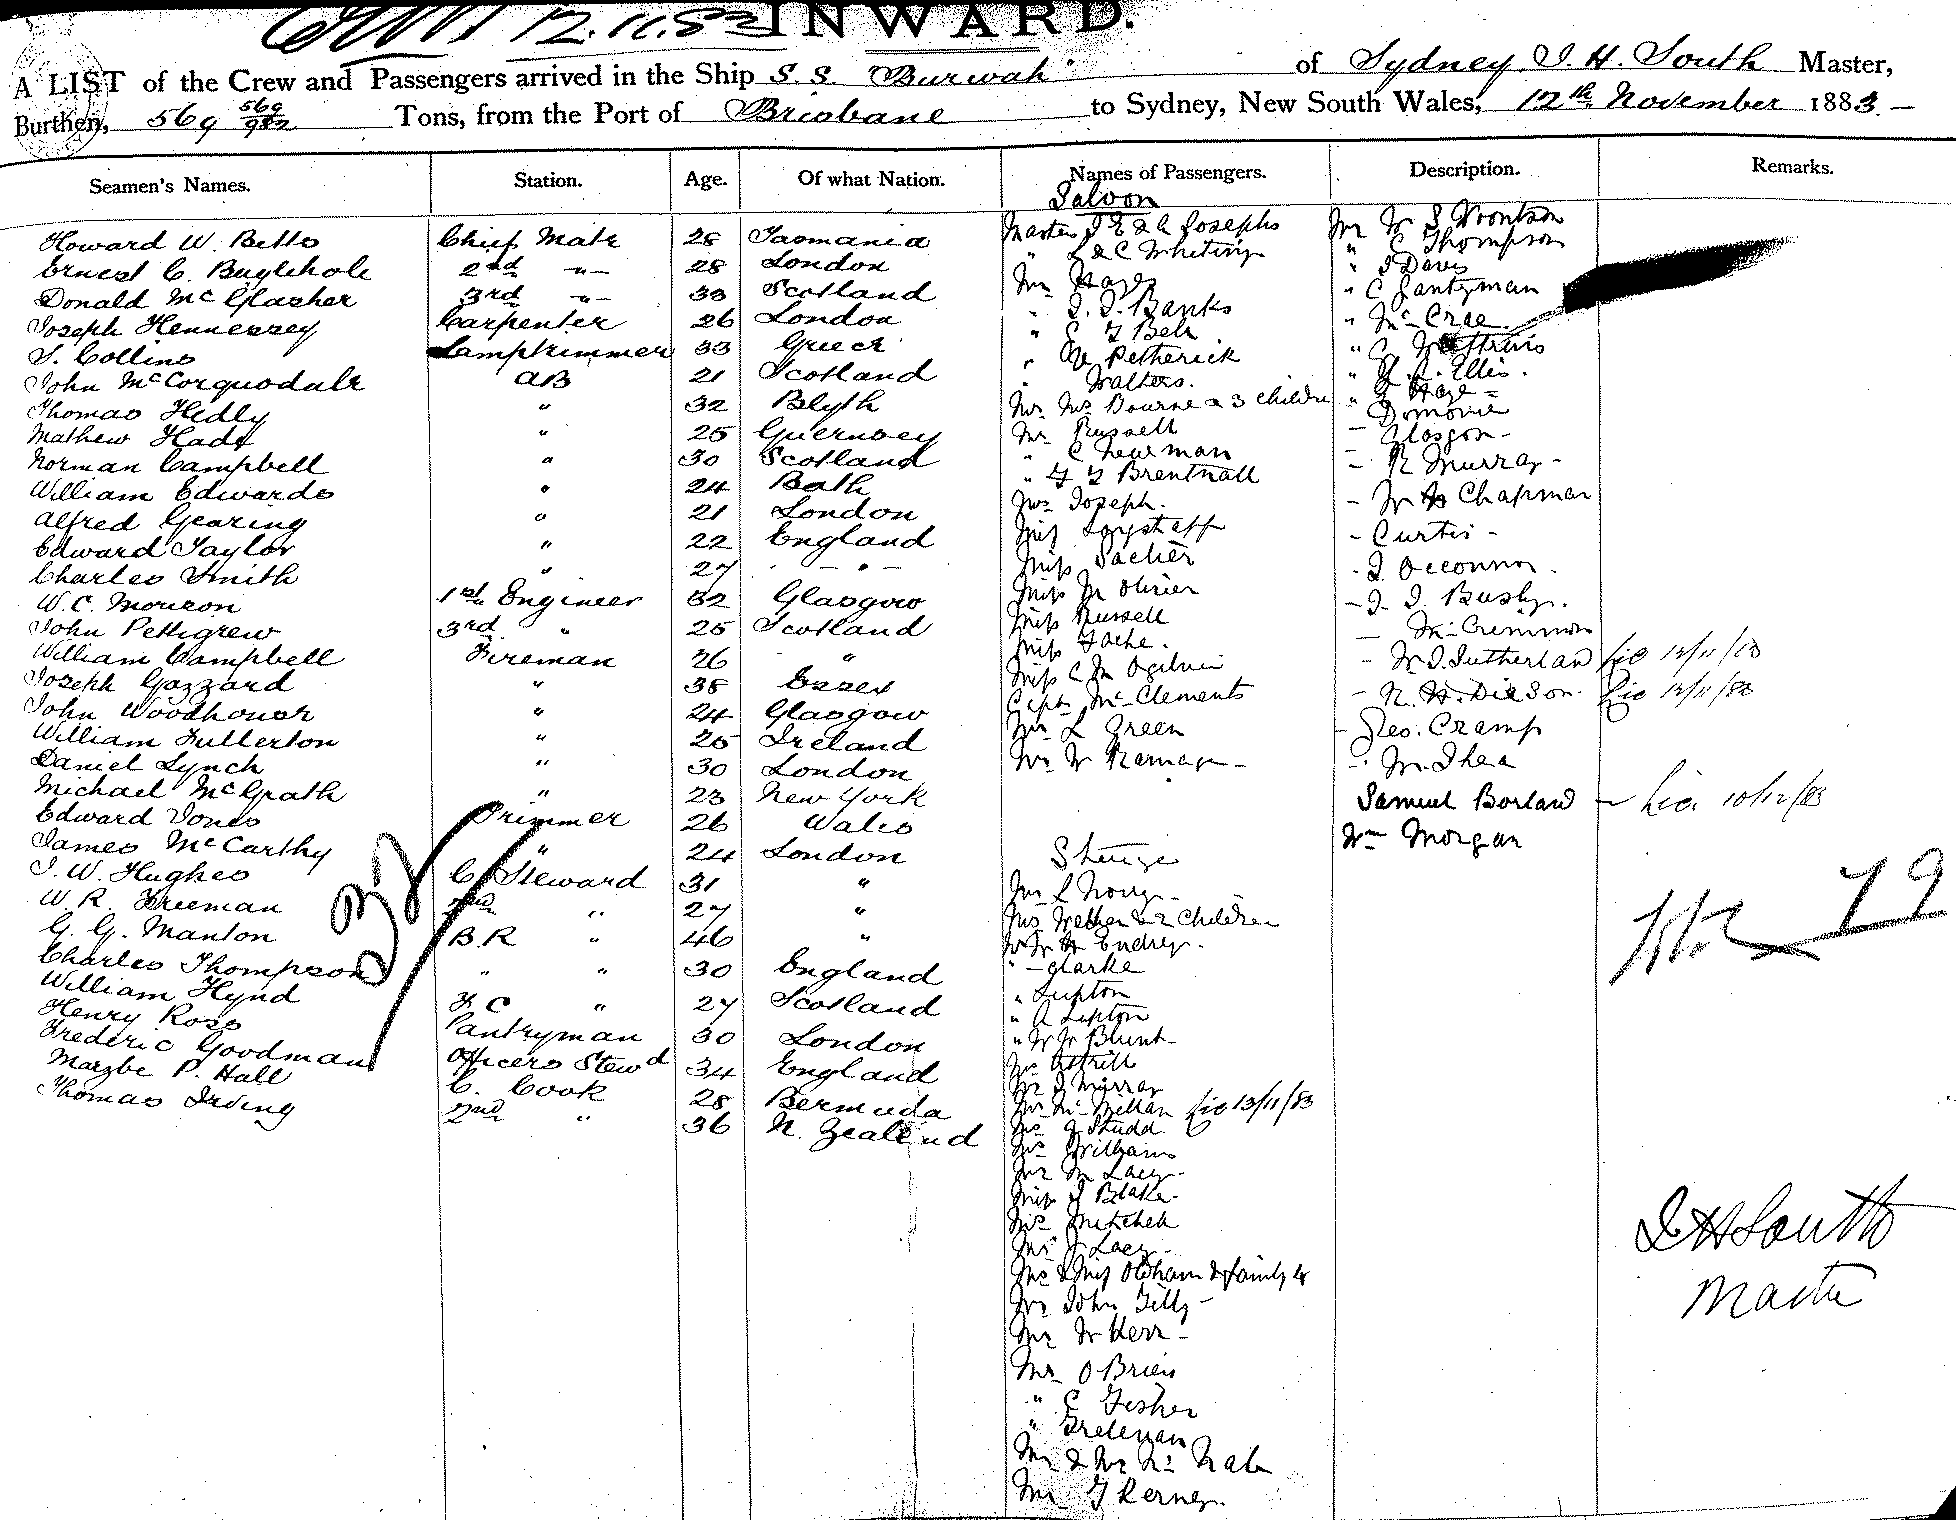 12.11.83 INWARD.
A LIST of the Crew and Passengers arrived in the Ship S. S. "Burwah" of Sydney, J. H. South Master,
Burthen, 569 569/982 Tons, from the Port of Brisbane to Sydney, New South Wales, 12th November 1883.
Seamen's Names. Station. Age. Of what Nation. Names of Passengers. Description. Remarks.
Howard W. Betts Chief Mate 28 Tasmania
Ernest C. Buglehole 2nd -"- 28 London
Donald McGlasher 3rd -"- 33 Scotland
Joseph Hennessey Carpenter 26 London
J. Collins Lamptrimmer 33 Greece
John McCorquodale AB 21 Scotland
Thomas Hedly " 32 Blyth
Mathew Hadt " 25 Guernsey
Norman Campbell " 30 Scotland
William Edwards " 24 Bath
Alfred Gearing " 21 London
Edward Taylor " 22 England
Charles Smith " 27 - " -
W. C. Mouron 1st Engineer 32 Glasgow
John Pettigrew 3rd " 25 Scotland
William Campbell Fireman 26 "
Joseph Gazzard " 38 Essex
John Woodhouse " 24 Glasgow
William Fullerton " 25 Ireland
Daniel Lynch " 30 London
Michael McGrath " 23 New York
Edward Jones Trimmer 26 Wales
James McCarthy " 24 London
J. W. Hughes C. Steward 31 "
W. R. Freeman 2nd " 27 "
G. G. Manton B.R " 46 "
Charles Thompson " " 30 England
William Hynd F C " 27 Scotland
Henry Ross Pantryman 30 London
Frederic Goodman Officers Stewd 34 England
Mazbe P. Hall C. Cook 28 Bermuda
Thomas Irving 2nd " 36 N. Zealand
Saloon
Masters J E & A Josephs
" L & C Whiting
Mr Hayes
" J. J. Banks
" E J Bell
" W Petherick
" Walters.
Mr Mrs Bourne & 3 children
Mr Russell
" C Newman
" F T Brentnall
Mrs Joseph.
Miss Longstaff
Miss Sachier
Miss M Olivier
Miss Russell
Miss Fache.
Miss C M Ogilvie
Capt McClements
Mr L Green
Mr W Ramage -
Steerage
Mr L Norry -
Mrs Wethen & 2 Children
" - Clarke
" Lupton
" A Lupton
" W W Blunt -
Mr J Murray
Mr McMillan Lic 13/11/83
Mr J Studd
Mr Williams
Mr M Lacy -
Miss J Blake -
Mrs Mitchell
Mr J Lacy -
Mrs & Miss Oldham & family 4
Mr John Tilly -
Mr W Kerr -
Mr O'Brien
" C Fisher
" Treleman
Mr & Mrs McNab
Mr J Kerney.
" C Thompson
" J Davis
" C Jantzman
" McCrae.
" H. A. Ellis.
- Glasgow -
- R Murray -
- W H Chapman
- Curtis -
- J. Oconnor.
- J. J. Busby.
- McCrimmon
- W J. Sutherland Lic 13/11/83
- N. H. Dickson. Lic 13/11/83
- Geo. Cramp
- W. Shea
Samuel Borland - Lic. 10/12/83
Wm Morgan
79
J H South
Master